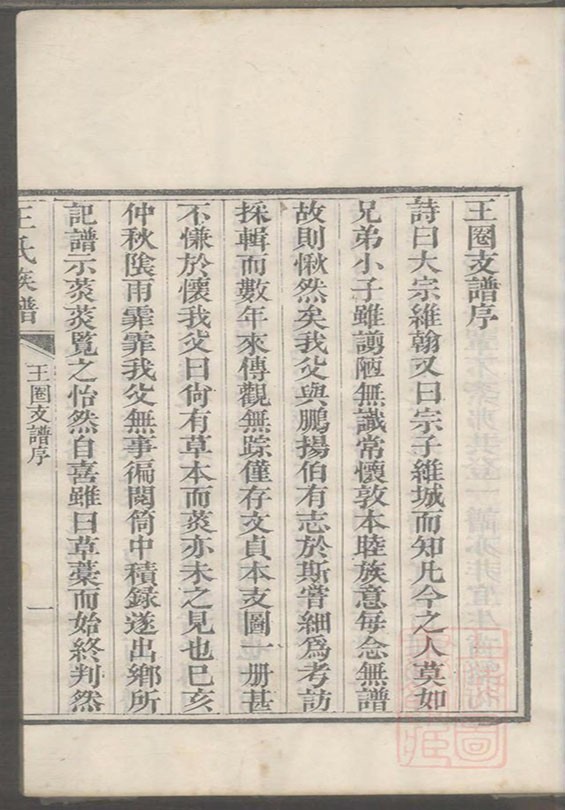 王圈支譜序
詩曰大宗維翰又曰宗子維城而知凡今之人莫如
兄弟小子雖謭陋無識常懷敦本睦族意每念無譜
故則愀然矣我父與鵬揚伯有志於斯嘗細爲考訪
採輯而數年來傳觀無踪僅存文貞本支圖一册甚
不慊於懷我父曰尚有草本而葵亦未之見也已亥
仲秋陰雨霏霏我父無事徧閱笥中積録遂出鄉所
記譜示葵葵覧之怡然自喜雖曰草藁而始終判然
王氏族譜
王圈支譜序
一